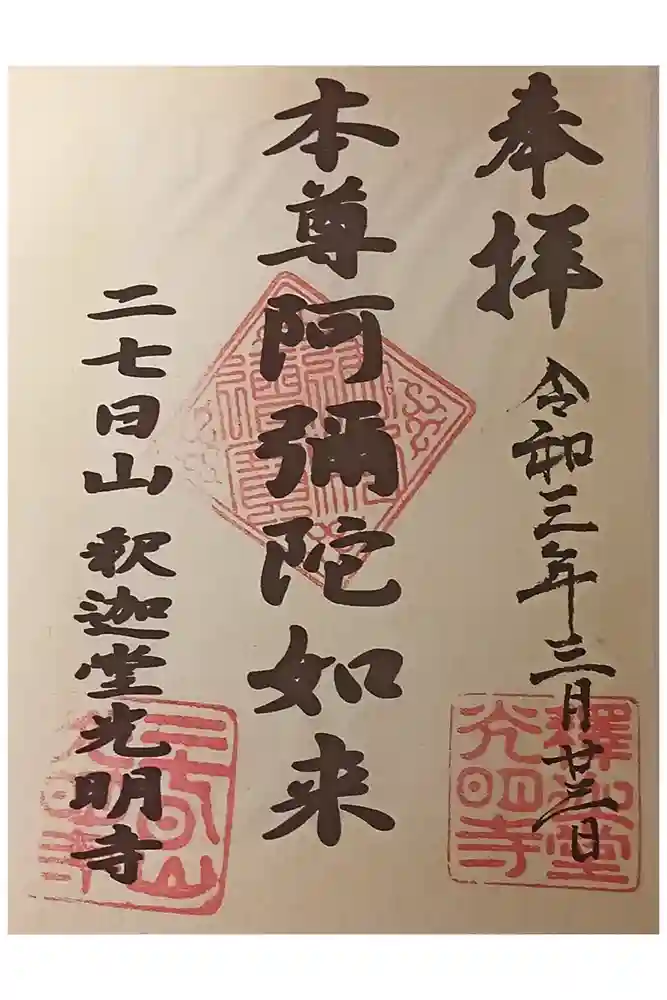 奉拝
令和三年三月廿三日
本尊阿彌陀如来
二七日山 釈迦堂光明寺
釋迦堂
光明寺
二七日山